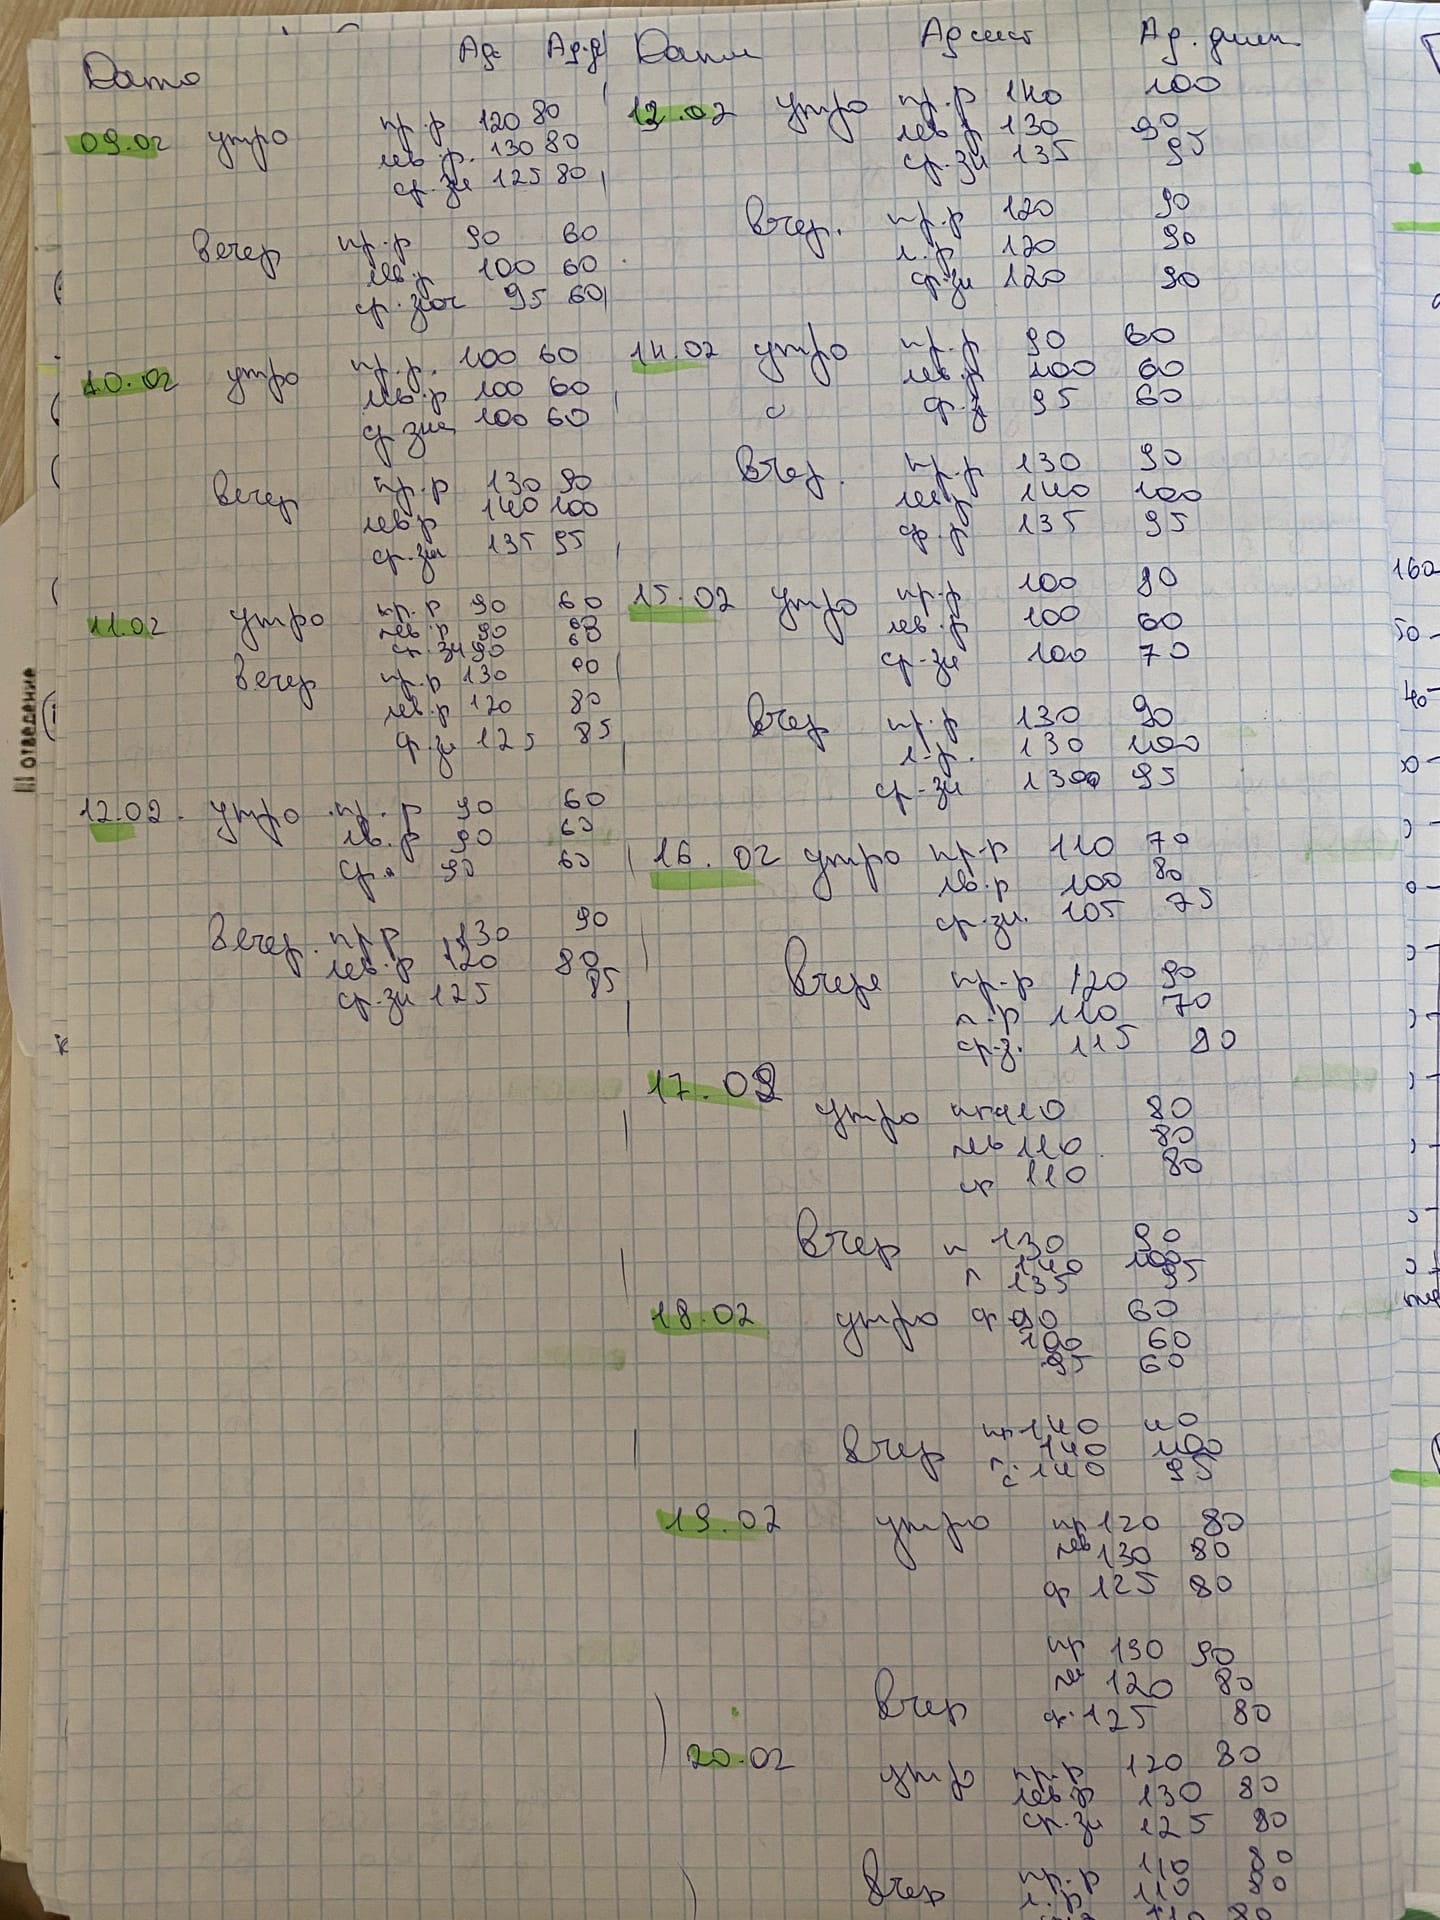 Дата Ад Ад.д
09.02 утро пр.р 120 80
лев.р. 130 80
ср.зн 125 80
Вечер пр.р 90 60
лев.р 100 60
ср.знач 95 60
10.02 утро пр.р. 100 60
лев.р 100 60
ср знач 100 60
Вечер пр.р 130 90
лев р 140 100
ср.зн 135 95
11.02 утро пр.р 90 60
лев.р 90 60
ср.зн 90 60
Вечер пр.р 130 90
лев.р 120 80
ср.зн 125 85
12.02. утро пр.р 90 60
лв.р 90 60
ср. 90 60
Вечер. пр р 130 90
лев.р 120 80
ср.зн 125 85
Дата Ад сист Ад. диаст
13.02 утро пр.р 140 100
лев р 130 90
ср.зн 135 95
Вчер. пр.р 120 90
л.р 120 90
ср.зн 120 90
14.02 утро пр.р 90 60
лев.р 100 60
ср.з 95 60
Вчер. пр.р 130 90
лев.р 140 100
ср.р 135 95
15.02 утро пр.р 100 80
лев.р 100 60
ср.зн 100 70
Вчер пр.р 130 90
л.р. 130 100
ср.зн 130 95
16.02 утро пр.р 110 70
лв.р 100 80
ср.зн. 105 75
Вчере пр.р 120 90
л.р 110 70
ср.з. 115 80
17.02
утро 110 80
лев 110 80
ср 110 80
Вчер п 130 90
л 140 100
135 95
18.02 утро 90 60
100 60
95 60
Вчер пр 140
л 140 100
с 140 95
19.02 утро пр 120 80
лев 130 80
ср 125 80
пр 130 90
120 80
Вчер ср. 125 80
20.02 утр пр.р 120 80
лев.р 130 80
ср.зн 125 80
Вчер пр.р 110 80
л.р 110 80
110 80
III отведение
160